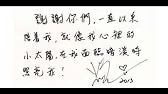 謝謝你們，一直以來
陪著我，就像我心裡的
小太陽，在我面臨暗淡時
照亮我！
2013